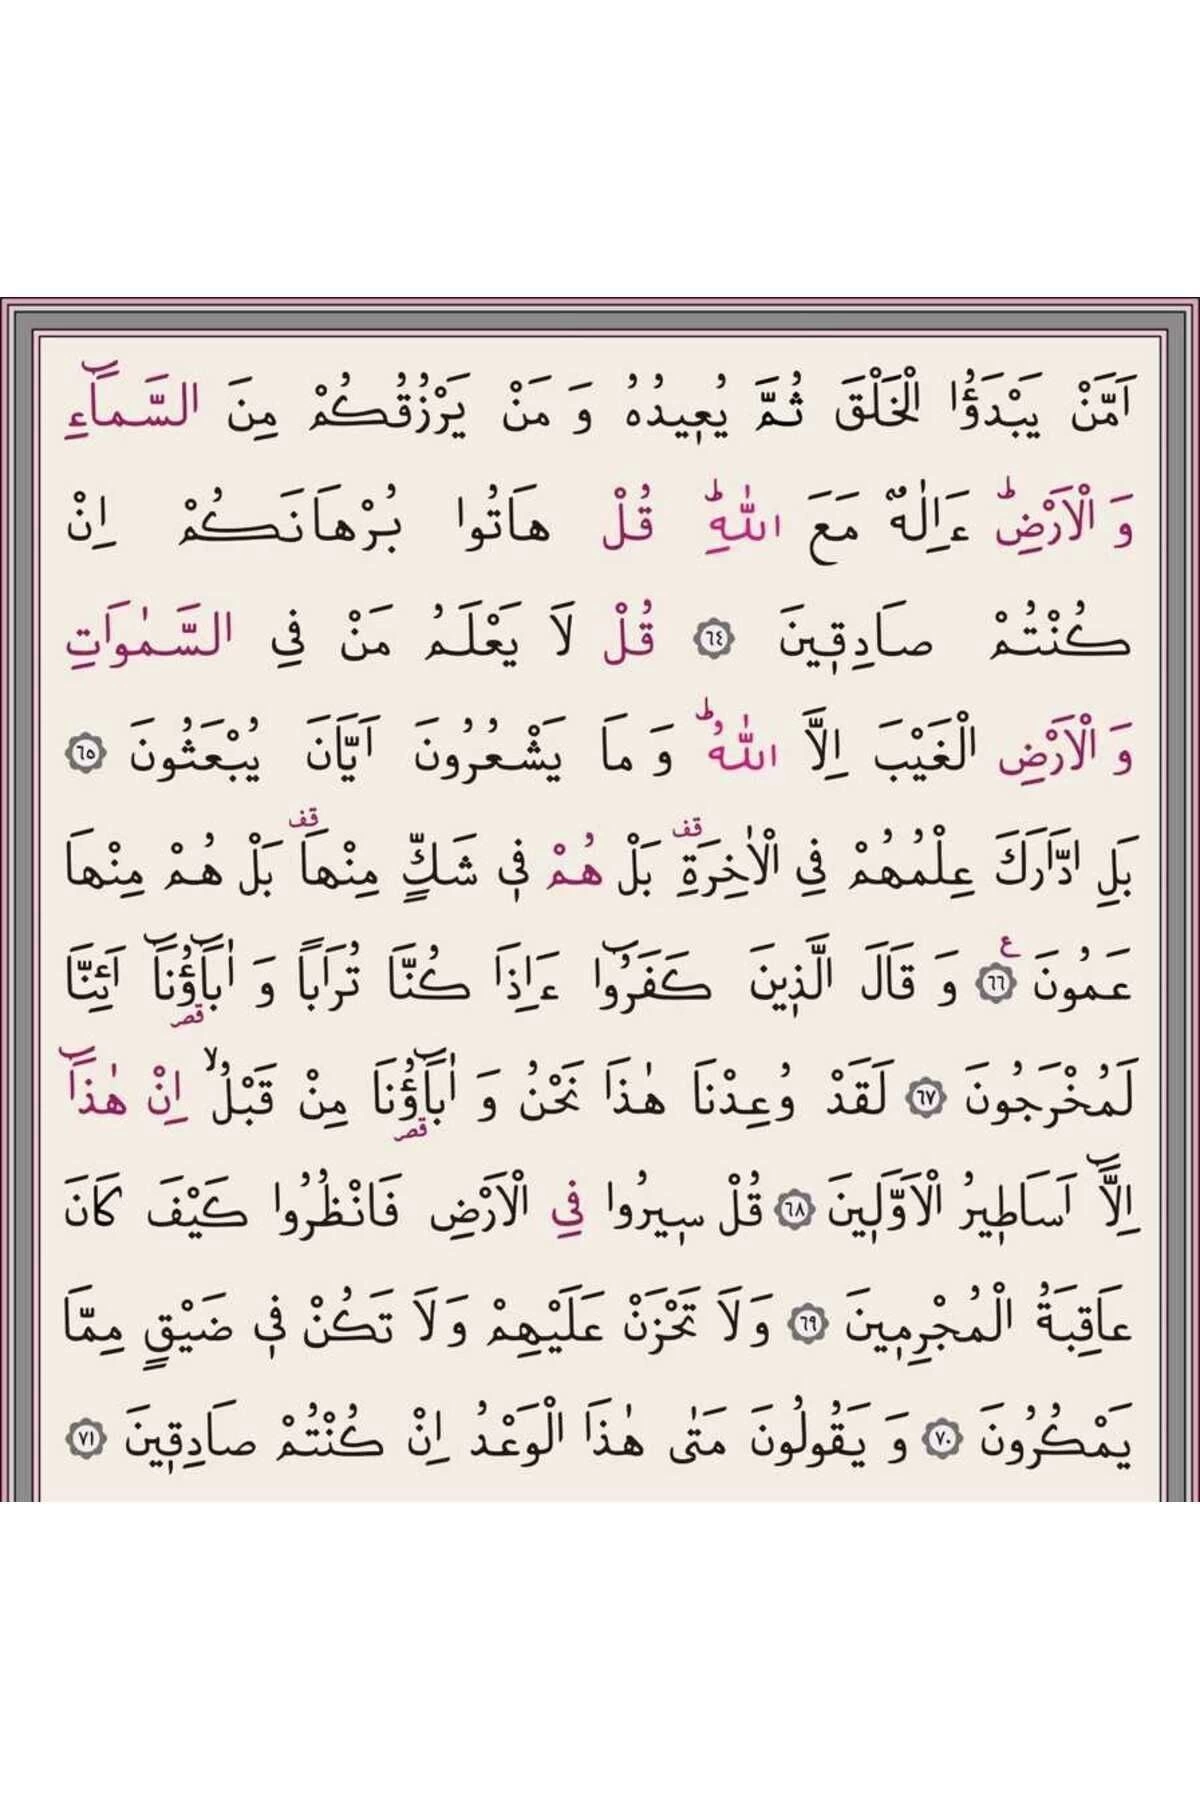 اَمَّنْ يَبْدَؤُا الْخَلْقَ ثُمَّ يُعِيدُهُ وَ مَنْ يَرْزُقُكُمْ مِنَ السَّمَٓاءِ
وَ الْاَرْضِؕ ءَاِلٰهٌ مَعَ اللّٰهِؕ قُلْ هَاتُوا بُرْهَانَكُمْ اِنْ
كُنْتُمْ صَادِقٖينَ ﴿٦٤﴾ قُلْ لَا يَعْلَمُ مَنْ فِي السَّمٰوَاتِ
وَ الْاَرْضِ الْغَيْبَ اِلَّا اللّٰهُؕ وَ مَا يَشْعُرُونَ اَيَّانَ يُبْعَثُونَ ﴿٦٥﴾
بَلِ ادَّارَكَ عِلْمُهُمْ فِي الْاٰخِرَةِ قف بَلْ هُمْ فٖي شَكٍّ مِنْهَا قف بَلْ هُمْ مِنْهَا
عَمُونَ ﴿٦٦﴾ ع وَ قَالَ الَّذٖينَ كَفَرُٓوا ءَاِذَا كُنَّا تُرَاباً وَ اٰبَٓاؤُنَٓا قصر اَئِنَّا
لَمُخْرَجُونَ ﴿٦٧﴾ لَقَدْ وُعِدْنَا هٰذَا نَحْنُ وَ اٰبَٓاؤُنَا قصر مِنْ قَبْلُۙ اِنْ هٰذَٓا
اِلَّٓا اَسَاطٖيرُ الْاَوَّلٖينَ ﴿٦٨﴾ قُلْ سٖيرُوا فِي الْاَرْضِ فَانْظُرُوا كَيْفَ كَانَ
عَاقِبَةُ الْمُجْرِمٖينَ ﴿٦٩﴾ وَلَا تَحْزَنْ عَلَيْهِمْ وَلَا تَكُنْ فٖي ضَيْقٍ مِمَّا
يَمْكُرُونَ ﴿٧٠﴾ وَ يَقُولُونَ مَتٰى هٰذَا الْوَعْدُ اِنْ كُنْتُمْ صَادِقٖينَ ﴿٧١﴾